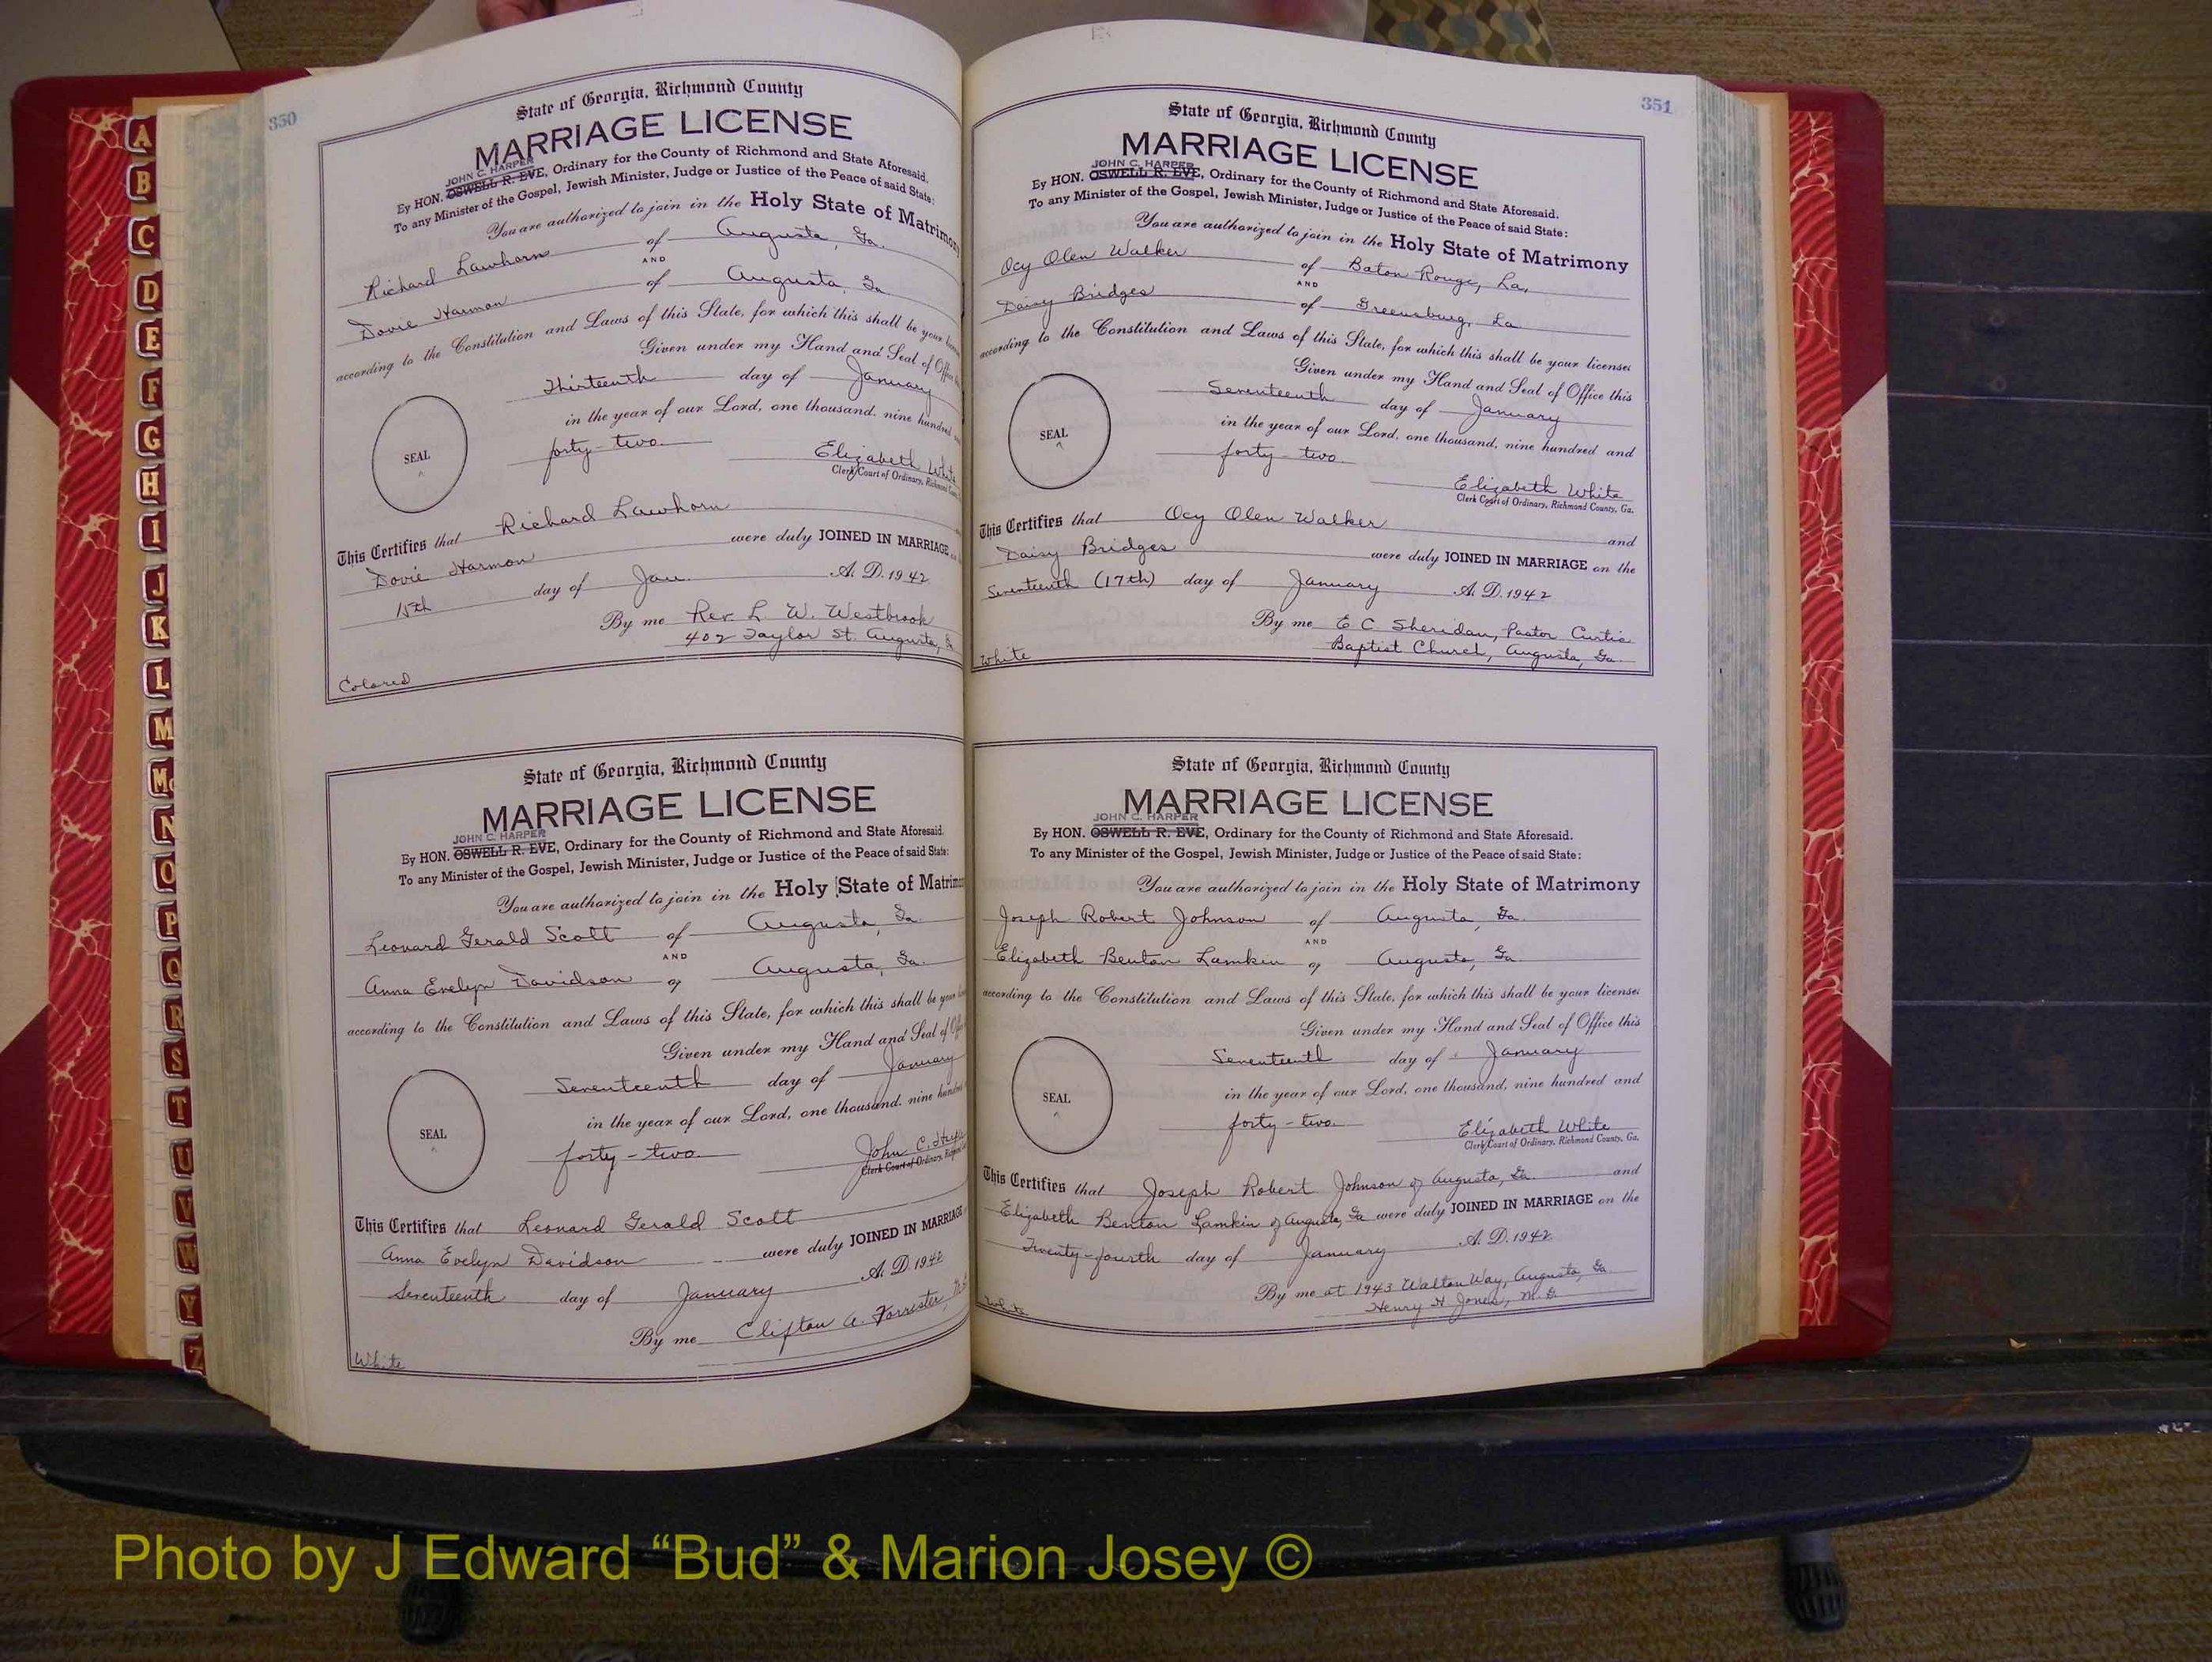 350
State of Georgia, Richmond County
MARRIAGE LICENSE
JOHN C. HARPER
By HON. OSWELL R. EVE, Ordinary for the County of Richmond and State Aforesaid.
To any Minister of the Gospel, Jewish Minister, Judge or Justice of the Peace of said State:
You are authorized to join in the Holy State of Matrimony
Richard Lawhorn of Augusta, Ga.
AND
Dovie Harmon of Augusta, Ga.
according to the Constitution and Laws of this State, for which this shall be your
Given under my Hand and Seal of Office
Thirteenth day of January
in the year of our Lord, one thousand, nine hundred
forty-two
SEAL
Elizabeth White
Clerk Court of Ordinary, Richmond
This Certifies that Richard Lawhorn
Dovie Harmon were duly JOINED IN MARRIAGE
15th day of Jan. A. D. 1942
By me Rev. L. W. Westbrook
402 Taylor St. Augusta,
Colored
State of Georgia, Richmond County
MARRIAGE LICENSE
JOHN C. HARPER
By HON. OSWELL R. EVE, Ordinary for the County of Richmond and State Aforesaid.
To any Minister of the Gospel, Jewish Minister, Judge or Justice of the Peace of said State:
You are authorized to join in the Holy State of Matrim
Leonard Gerald Scott of Augusta, Ga.
AND
Anna Evelyn Davidson of Augusta, Ga.
according to the Constitution and Laws of this State, for which this shall be your
Given under my Hand and Seal of Offi
Seventeenth day of January
in the year of our Lord, one thousand, nine hundre
forty-two.
SEAL
John C. Harpe
Clerk Court of Ordinary,
This Certifies that Leonard Gerald Scott
Anna Evelyn Davidson were duly JOINED IN MARRIAGE
Seventeenth day of January A. D. 1942
By me Clifton A. Forrester,
White
351
State of Georgia, Richmond County
MARRIAGE LICENSE
JOHN C. HARPER
By HON. OSWELL R. EVE, Ordinary for the County of Richmond and State Aforesaid.
To any Minister of the Gospel, Jewish Minister, Judge or Justice of the Peace of said State:
You are authorized to join in the Holy State of Matrimony
Ocy Olen Walker of Baton Rouge, La,
AND
Daisy Bridges of Greensburg, La
according to the Constitution and Laws of this State, for which this shall be your licenses
Given under my Hand and Seal of Office this
Seventeenth day of January
in the year of our Lord, one thousand, nine hundred and
forty-two
SEAL
Elizabeth White
Clerk Court of Ordinary, Richmond County, Ga.
This Certifies that Ocy Olen Walker and
Daisy Bridges were duly JOINED IN MARRIAGE on the
Seventeenth (17th) day of January A. D. 1942
By me E C Sheridan, Pastor Curtis
Baptist Church, Augusta, Ga.
White
State of Georgia, Richmond County
MARRIAGE LICENSE
JOHN C. HARPER
By HON. OSWELL R. EVE, Ordinary for the County of Richmond and State Aforesaid.
To any Minister of the Gospel, Jewish Minister, Judge or Justice of the Peace of said State:
You are authorized to join in the Holy State of Matrimony
Joseph Robert Johnson of Augusta, Ga.
AND
Elizabeth Benton Lamkin of Augusta, Ga.
according to the Constitution and Laws of this State, for which this shall be your licenses
Given under my Hand and Seal of Office this
Seventeenth day of January
in the year of our Lord, one thousand, nine hundred and
forty-two.
SEAL
Elizabeth White
Clerk Court of Ordinary, Richmond County, Ga.
This Certifies that Joseph Robert Johnson of Augusta, Ga. and
Elizabeth Benton Lamkin of Augusta, Ga were duly JOINED IN MARRIAGE on the
Twenty-fourth day of January A. D. 1942
By me at 1943 Walton Way, Augusta, Ga.
Henry H. Jones, M. G.
White
A
B
C
D
E
F
G
H
I
J
K
L
M
Mc
N
O
P
Q
R
S
T
U
V
W
Y
Z
Photo by J Edward “Bud” & Marion Josey ©